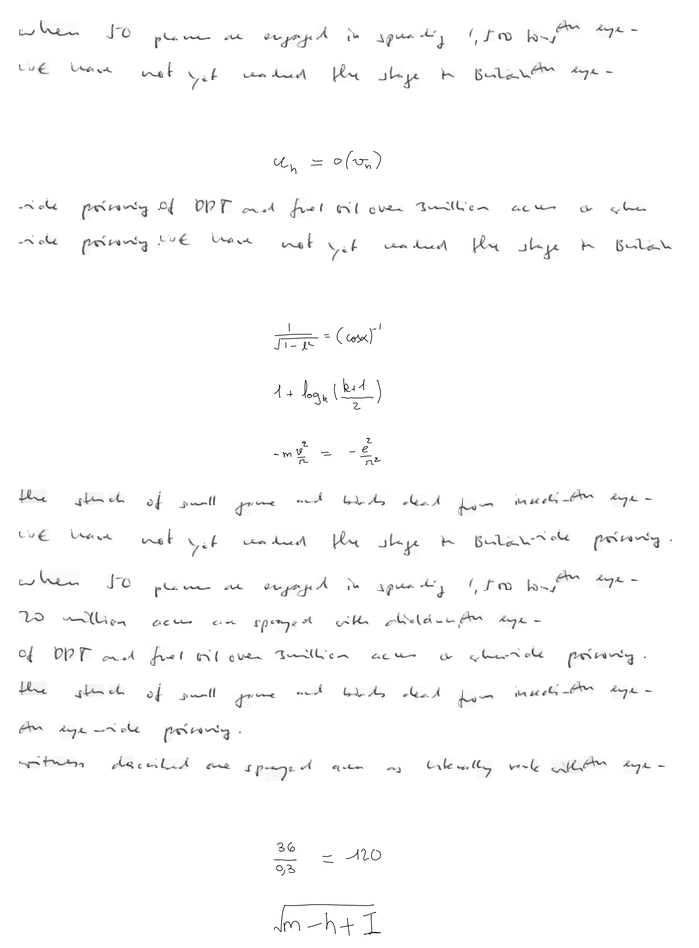 when 50 planes are engaged in spreading 1,500 tons An eye-
WE have not yet reached the stage in Britain An eye-
u_n = o(v_n)
-icide poisoning. of DDT and fuel oil over 3 million acres or when
-icide poisoning. WE have not yet reached the stage in Britain
1/√(1-l²) = (cosα)^-1
1 + log_k((k+1)/2)
-m v²/r = -e²/r²
the stench of small game and birds dead from insecti- An eye-
WE have not yet reached the stage in Britain -icide poisoning.
when 50 planes are engaged in spreading 1,500 tons An eye-
20 million acres are sprayed with dieldrin, An eye-
of DDT and fuel oil over 3 million acres or when -icide poisoning.
the stench of small game and birds dead from insecti- An eye-
An eye- -icide poisoning.
witness described one sprayed area as literally reek with An eye-
36/0,3 = 120
√(m-n+I)